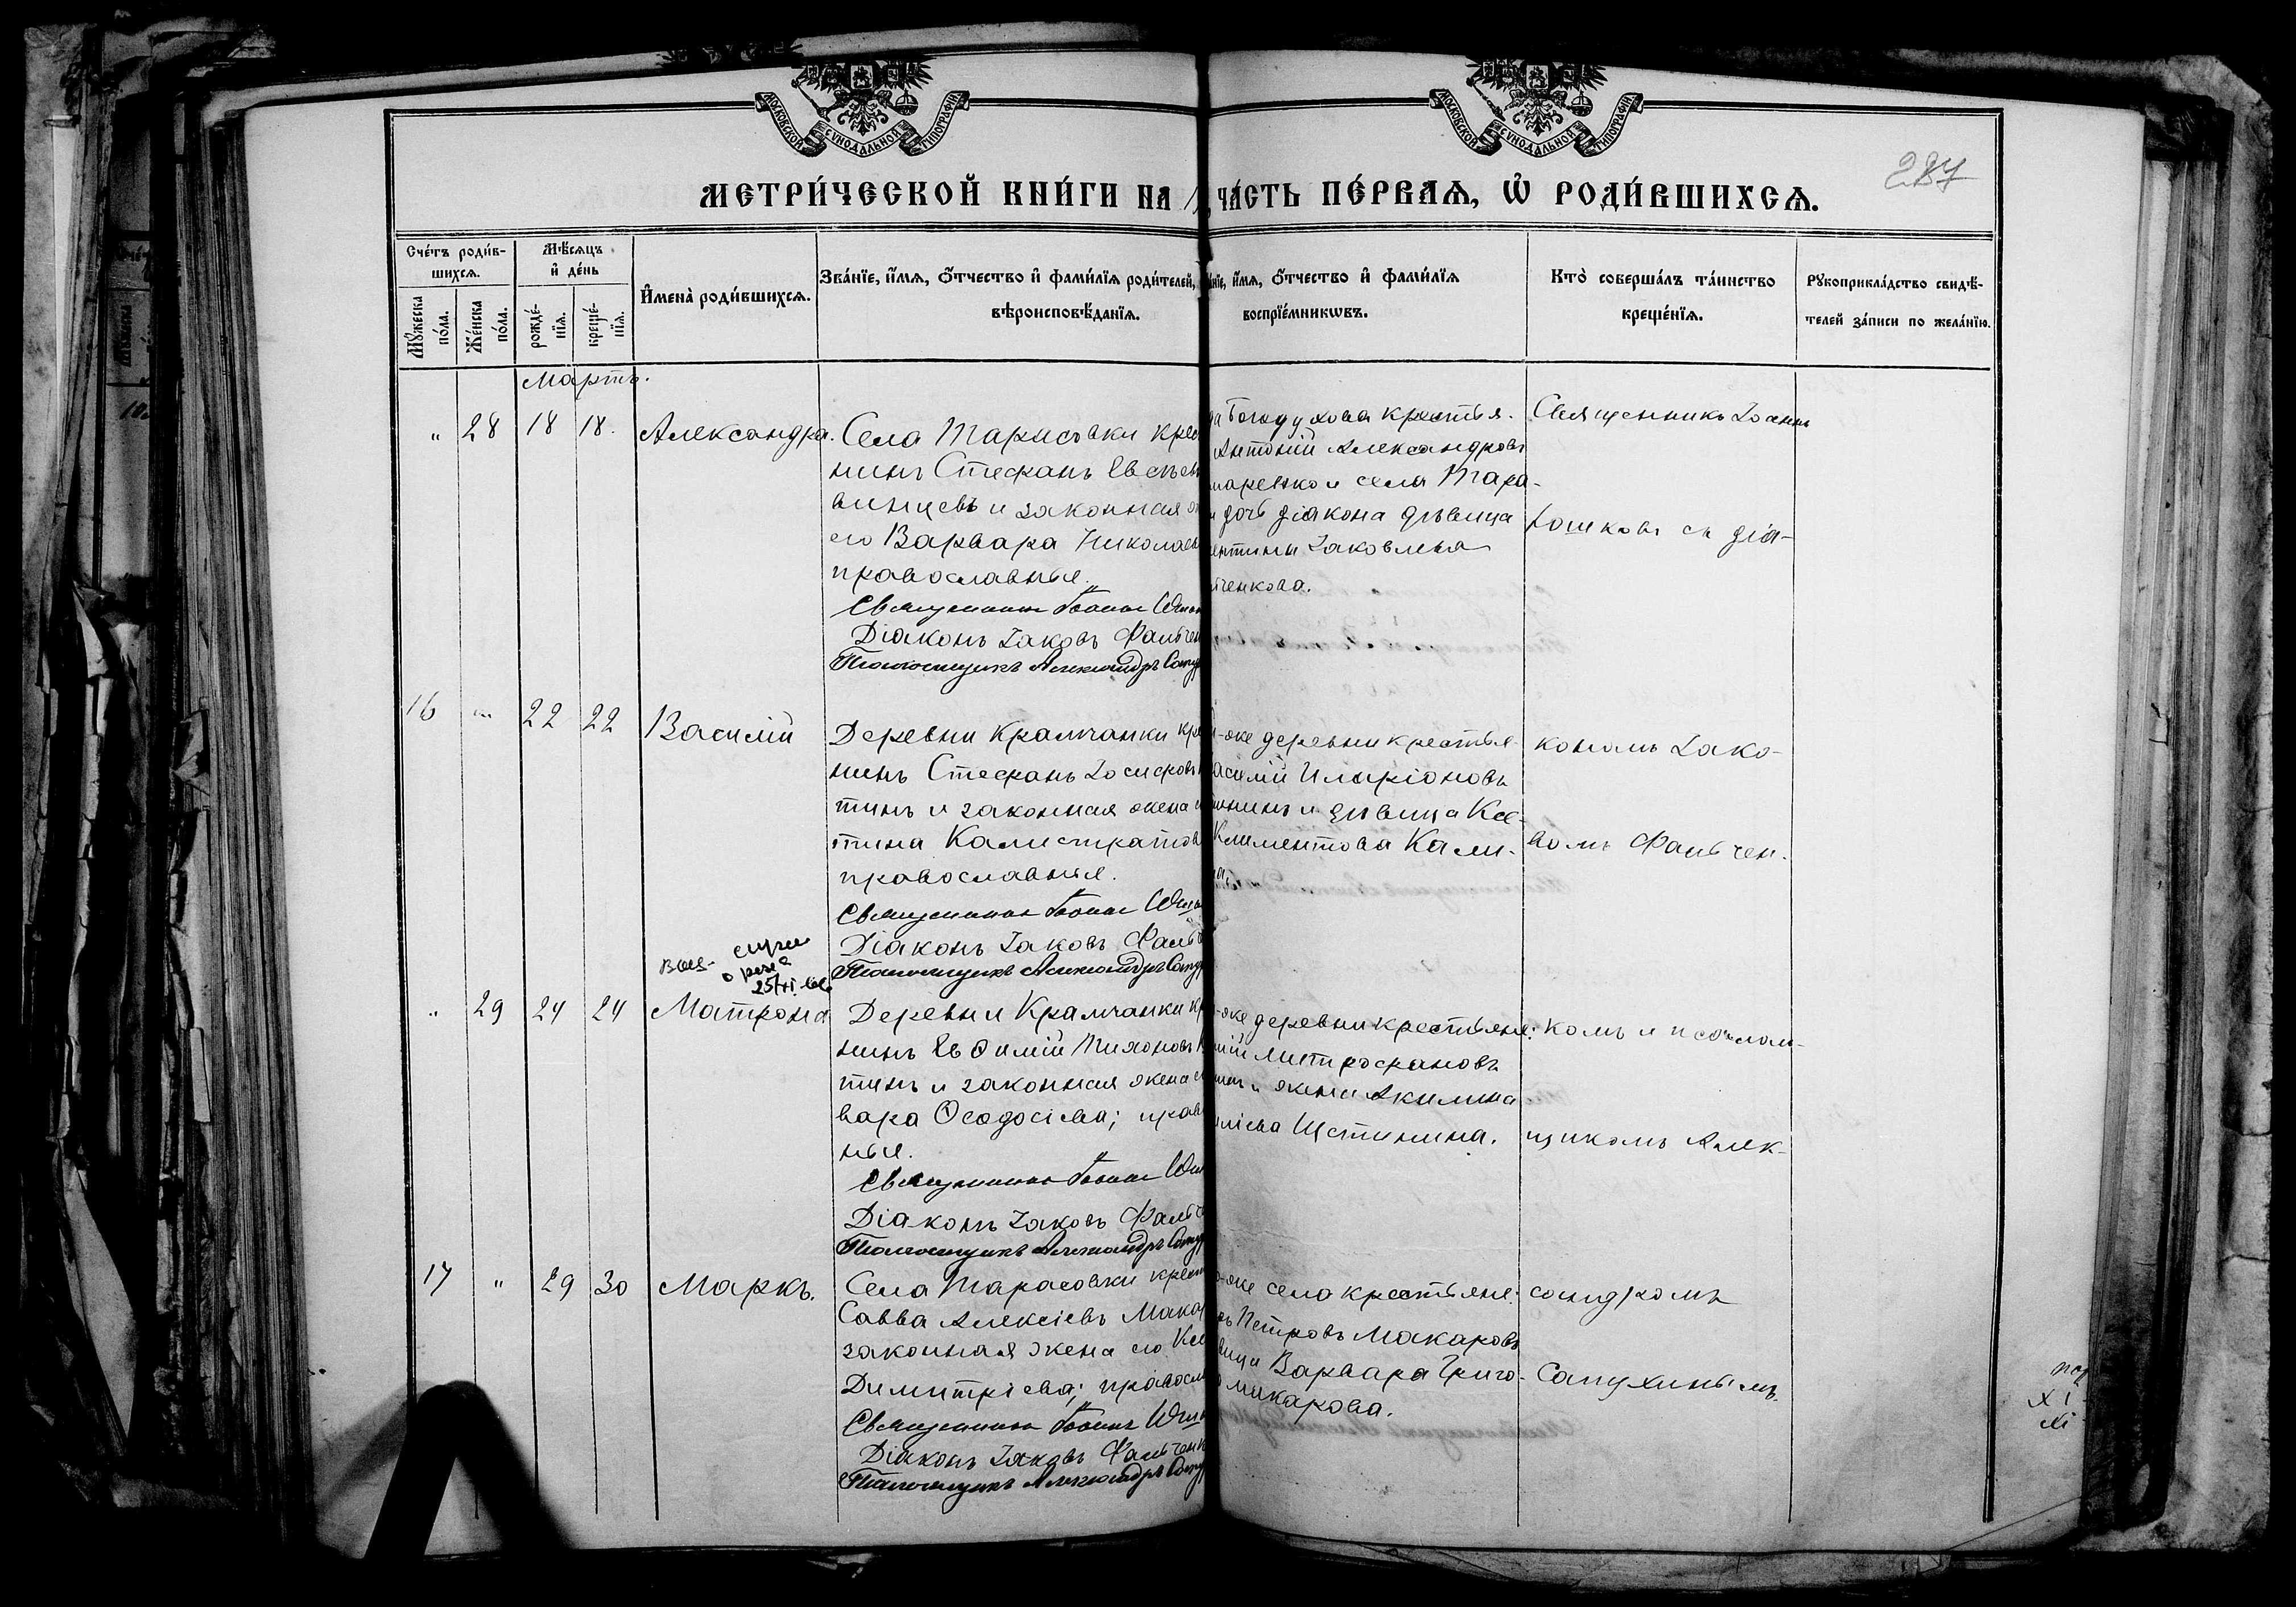 МОСКОВСКОЙ СУНОДАЛЬНОЙ ТИПОГРАФІИ
МОСКОВСКОЙ СУНОДАЛЬНОЙ ТИПОГРАФІИ
287
МЕТРИ́ЧЕСКОЙ КНИ́ГИ НА 1
ЧА́СТЬ ПЕ́РВАЯ, Ѡ҆ РОДИ́ВШИХСЯ.
Сче́тъ роди́в-
шихся.
Мѣ́сяцъ
и҆ де́нь
Му́жеска
по́ла.
Же́нска
по́ла.
рожде́-
нїя.
креще́-
нїя.
И҆мена̀ роди́вшихся.
Зва́нїе, и҆́мя, ѻ҆́тчество и҆ фами́лїя роди́телей,
вѣроисповѣ́данїя.
и҆́мя, ѻ҆́тчество и҆ фами́лїя
воспрїе́мникѡвъ.
Кто̀ соверша́лъ та́инство
креще́нїя.
Рукоприкла́дство свидѣ́-
телей за́писи по жела́нїю.
Мартъ.
" 28 18 18. Александра.
Села Тарасовки крес
нинъ Стефанъ Евсѣев
винцевъ и законная
его Варвара Николаев
православные.
Священникъ Іоаннъ
Діаконъ Іаковъ Фальчен
Псаломщикъ Александръ Сапу
Богодухова крестья-
Антоній Александровъ
маренко и села Тара-
дочь діакона дѣвица
ентина Іаковлева
ьченкова.
Священникъ Іоаннъ
Юшковъ съ діа-
16 " 22 22 Василій
Деревни Крамчанки кре
нинъ Стефанъ Іосифовъ
тинъ и законная жена
стина Калистратов
православные.
Священникъ Іоаннъ
Діаконъ Іаковъ Фальч
Псаломщикъ Александръ Сапу
-же деревни крестья-
асилій Иларіоновъ
и дѣвица Ксе-
Климентова Кали-
на.
кономъ Іако-
вомъ Фальчен-
" 29 24 24 Матрона
Деревни Крамчанки кр
нинъ Евѳимій Тихоновъ
тинъ и законная жена
вара Ѳеодосіева; прав
ные.
Священникъ Іоаннъ
Діаконъ Іаковъ Фальче
Псаломщикъ Александръ Сапу
-же деревни крестьяне:
Митрофановъ
и жена Акилина
иліева Щетинина.
комъ и псалом-
щикомъ Алек-
17 " 29 30 Маркъ.
Села Тарасовки крест
Савва Алексіевъ Мака
законная жена его Ксе
Димитріева; правосл
Священникъ Іоаннъ
Діаконъ Іаковъ Фальченк
Псаломщикъ Александръ Сапу
-же села крестьяне:
Петровъ Макаровъ
вица Варвара Григо-
Макарова.
сандромъ
Сапухинымъ.